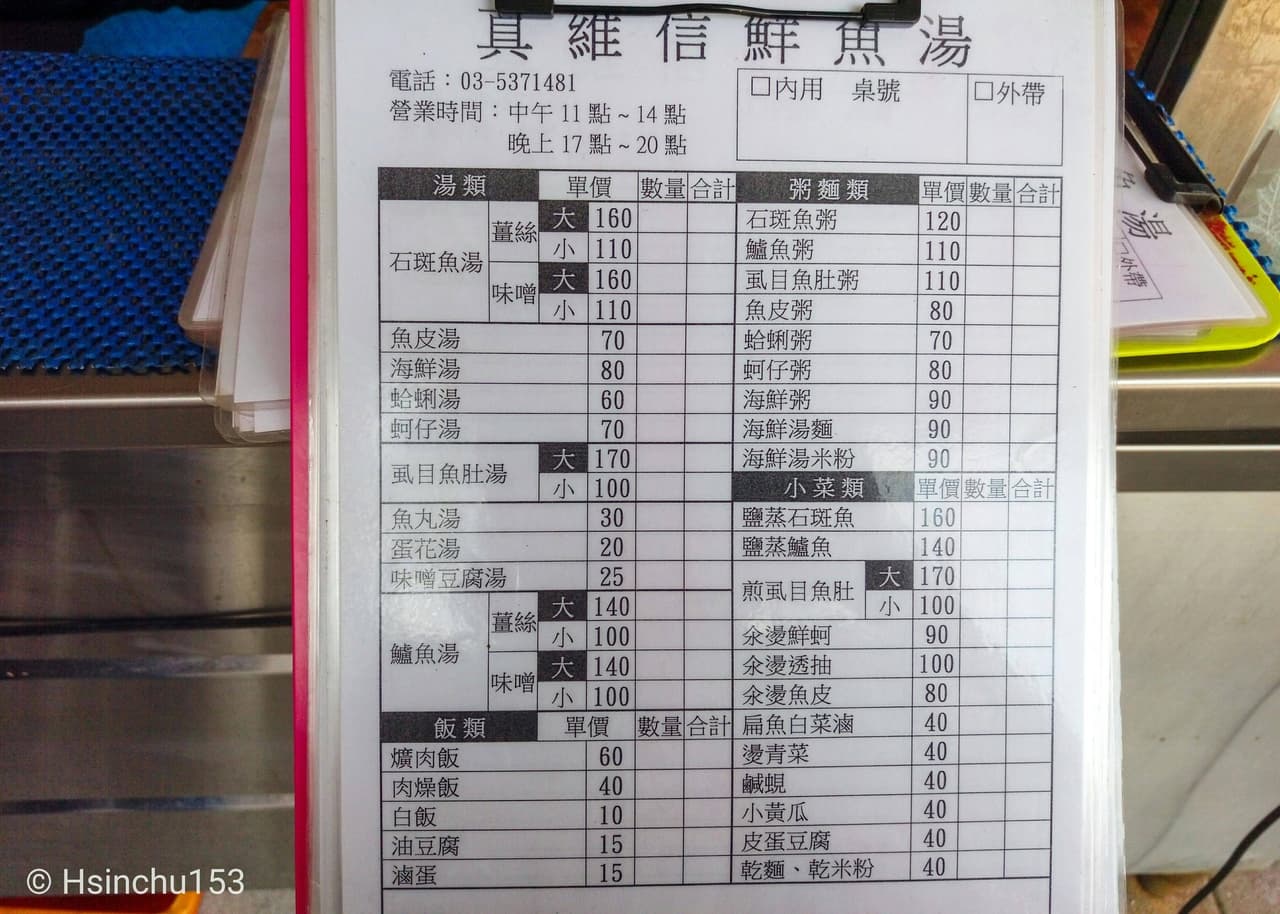 真維信鮮魚湯
電話：03-5371481
營業時間：中午 11 點 ~ 14 點
晚上 17 點 ~ 20 點
□內用 桌號 □外帶
湯類 單價 數量 合計
石斑魚湯 薑絲 大 160
小 110
味噌 大 160
小 110
魚皮湯 70
海鮮湯 80
蛤蜊湯 60
蚵仔湯 70
虱目魚肚湯 大 170
小 100
魚丸湯 30
蛋花湯 20
味噌豆腐湯 25
鱸魚湯 薑絲 大 140
小 100
味噌 大 140
小 100
飯類 單價 數量 合計
爌肉飯 60
肉燥飯 40
白飯 10
油豆腐 15
滷蛋 15
粥麵類 單價 數量 合計
石斑魚粥 120
鱸魚粥 110
虱目魚肚粥 110
魚皮粥 80
蛤蜊粥 70
蚵仔粥 80
海鮮粥 90
海鮮湯麵 90
海鮮湯米粉 90
小菜類 單價 數量 合計
鹽蒸石斑魚 160
鹽蒸鱸魚 140
煎虱目魚肚 大 170
小 100
汆燙鮮蚵 90
汆燙透抽 100
汆燙魚皮 80
扁魚白菜滷 40
燙青菜 40
鹹蜆 40
小黃瓜 40
皮蛋豆腐 40
乾麵、乾米粉 40
湯
外帶
© Hsinchu153